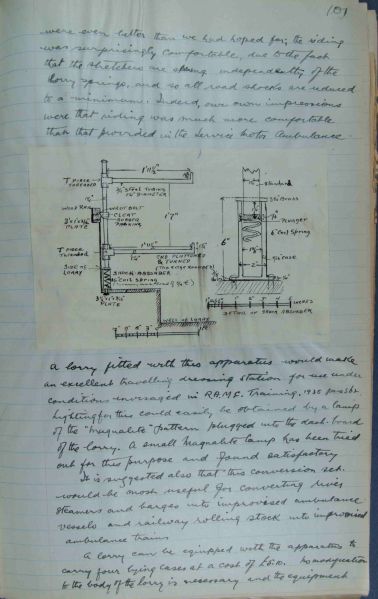 101
were even better than we had hoped for; the riding
was surprisingly comfortable, due to the fact
that the stretchers are sprung independently of the
lorry springs, and so all road shocks are reduced
to a minimum. Indeed, our own impressions
were that riding was much more comfortable
than that provided in the Service Motor Ambulance.
1'11½"
T PIECE
THREADED
¾" STEEL TUBING
DIAMETER
WOOD RAIL
WOOD BOLT
CLEAT
RUBBER
PACKING
PLATE
1'7"
T PIECE
THREADED
1'11½"
END FLATTENED
& TURNED
SIDE OF
LORRY
SHOCK ABSORBER
6" COIL SPRING
PLATE
WELL OF LORRY
Standard
6"
PLUNGER
6" COIL SPRING
CASE
INCHES
DETAIL OF SHOCK ABSORBER
A lorry fitted with this apparatus would make
an excellent travelling dressing station for use under
conditions envisaged in R.A.M.C. Training, 1935
Lighting for this could easily be obtained by a lamp
of the "Magnalite" pattern plugged into the dash-board
of the lorry. A small Magnalite lamp has been tried
out for this purpose and found satisfactory
It is suggested also that this conversion set
would be most useful for converting river
steamers and barges into improvised ambulance
vessels and railway rolling stock into improvised
ambulance trains
A lorry can be equipped with the apparatus to
carry four lying cases at a cost of No modification
to the body of the lorry is necessary and the equipment